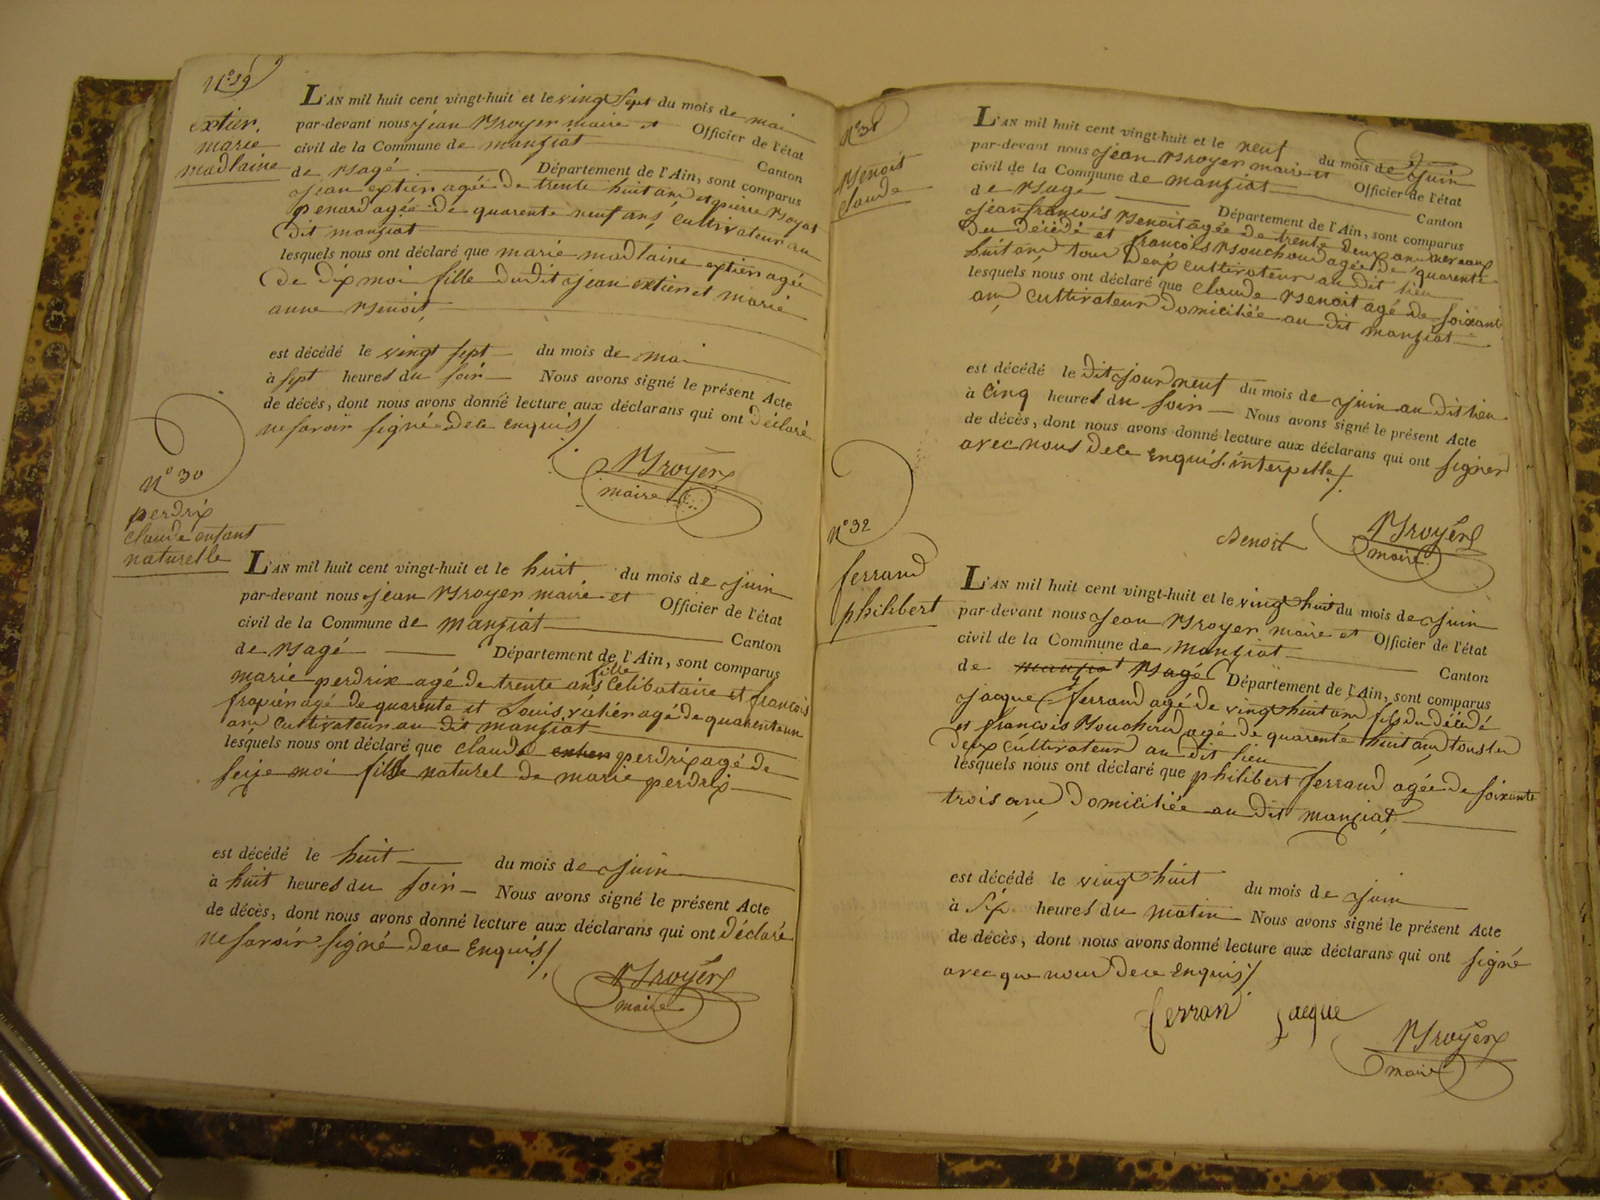 N° 29
extier
marie
madlaine
L'AN mil huit cent vingt-huit et le vingt sept du mois de mai
par-devant nous jean Broyer maire et Officier de l'état
civil de la Commune de manziat Canton
de Bagé Département de l'Ain, sont comparus
jean extier agée de trente huit an et pierre Boyat
penard agée de quarente neuf ans cultivateur au
dit manziat
lesquels nous ont déclaré que marie madlaine extier agée
de dix moi fille du dit jean extier et marie
anne Benoit
est décédé le vingt sept du mois de mai
à sept heures du soir Nous avons signé le présent Acte
de décès, dont nous avons donné lecture aux déclarans qui ont déclaré
ne savoir signé de ce enquis
Broyer
maire
N° 30
perdrix
claude enfant
naturelle
L'AN mil huit cent vingt-huit et le huit du mois de juin
par-devant nous jean Broyer maire et Officier de l'état
civil de la Commune de manziat Canton
de Bagé Département de l'Ain, sont comparus
fille
marie perdrix agé de trente ans Celibataire et francois
agé de quarente et Louis agé de quarente un
an cultivateur au dit manziat
lesquels nous ont déclaré que claude extier perdrix agé de
seize moi fils naturel de marie perdrix
est décédé le huit du mois de juin
à huit heures du soir Nous avons signé le présent Acte
de décès, dont nous avons donné lecture aux déclarans qui ont déclaré
ne savoir signé de ce enquis
Broyer
maire
N° 31
Benoit
claude
L'AN mil huit cent vingt-huit et le neuf du mois de juin
par-devant nous jean Broyer maire et Officier de l'état
civil de la Commune de manziat Canton
de Bagé Département de l'Ain, sont comparus
jean francois Benoit agée de trente deux an
du décédé et francois Bouchoud agée de quarente
huit an tous deux cultivateur au dit lieu
lesquels nous ont déclaré que claude Benoit agé de soixante
an cultivateur domiciliée au dit manziat
est décédé le dit jour neuf du mois de juin au dit lieu
à cinq heures du soir Nous avons signé le présent Acte
de décès, dont nous avons donné lecture aux déclarans qui ont signer
avec nous de ce enquis interpelle
Benoit
Broyer
maire
N° 32
ferrand
philibert
L'AN mil huit cent vingt-huit et le vingt huit du mois de juin
par-devant nous jean Broyer maire et Officier de l'état
civil de la Commune de manziat Canton
de manziat Bagé Département de l'Ain, sont comparus
jaque ferrand agé de vingt huit an fils du décédé
et francois Bouchoud agé de quarente huit an tous les
deux cultivateur au dit lieu
lesquels nous ont déclaré que philibert ferrand agée de soixante
trois an domiciliée au dit manziat
est décédé le vingt huit du mois de juin
à six heures du matin Nous avons signé le présent Acte
de décès, dont nous avons donné lecture aux déclarans qui ont signé
avec que nous de ce enquis
ferran jaque
Broyer
maire